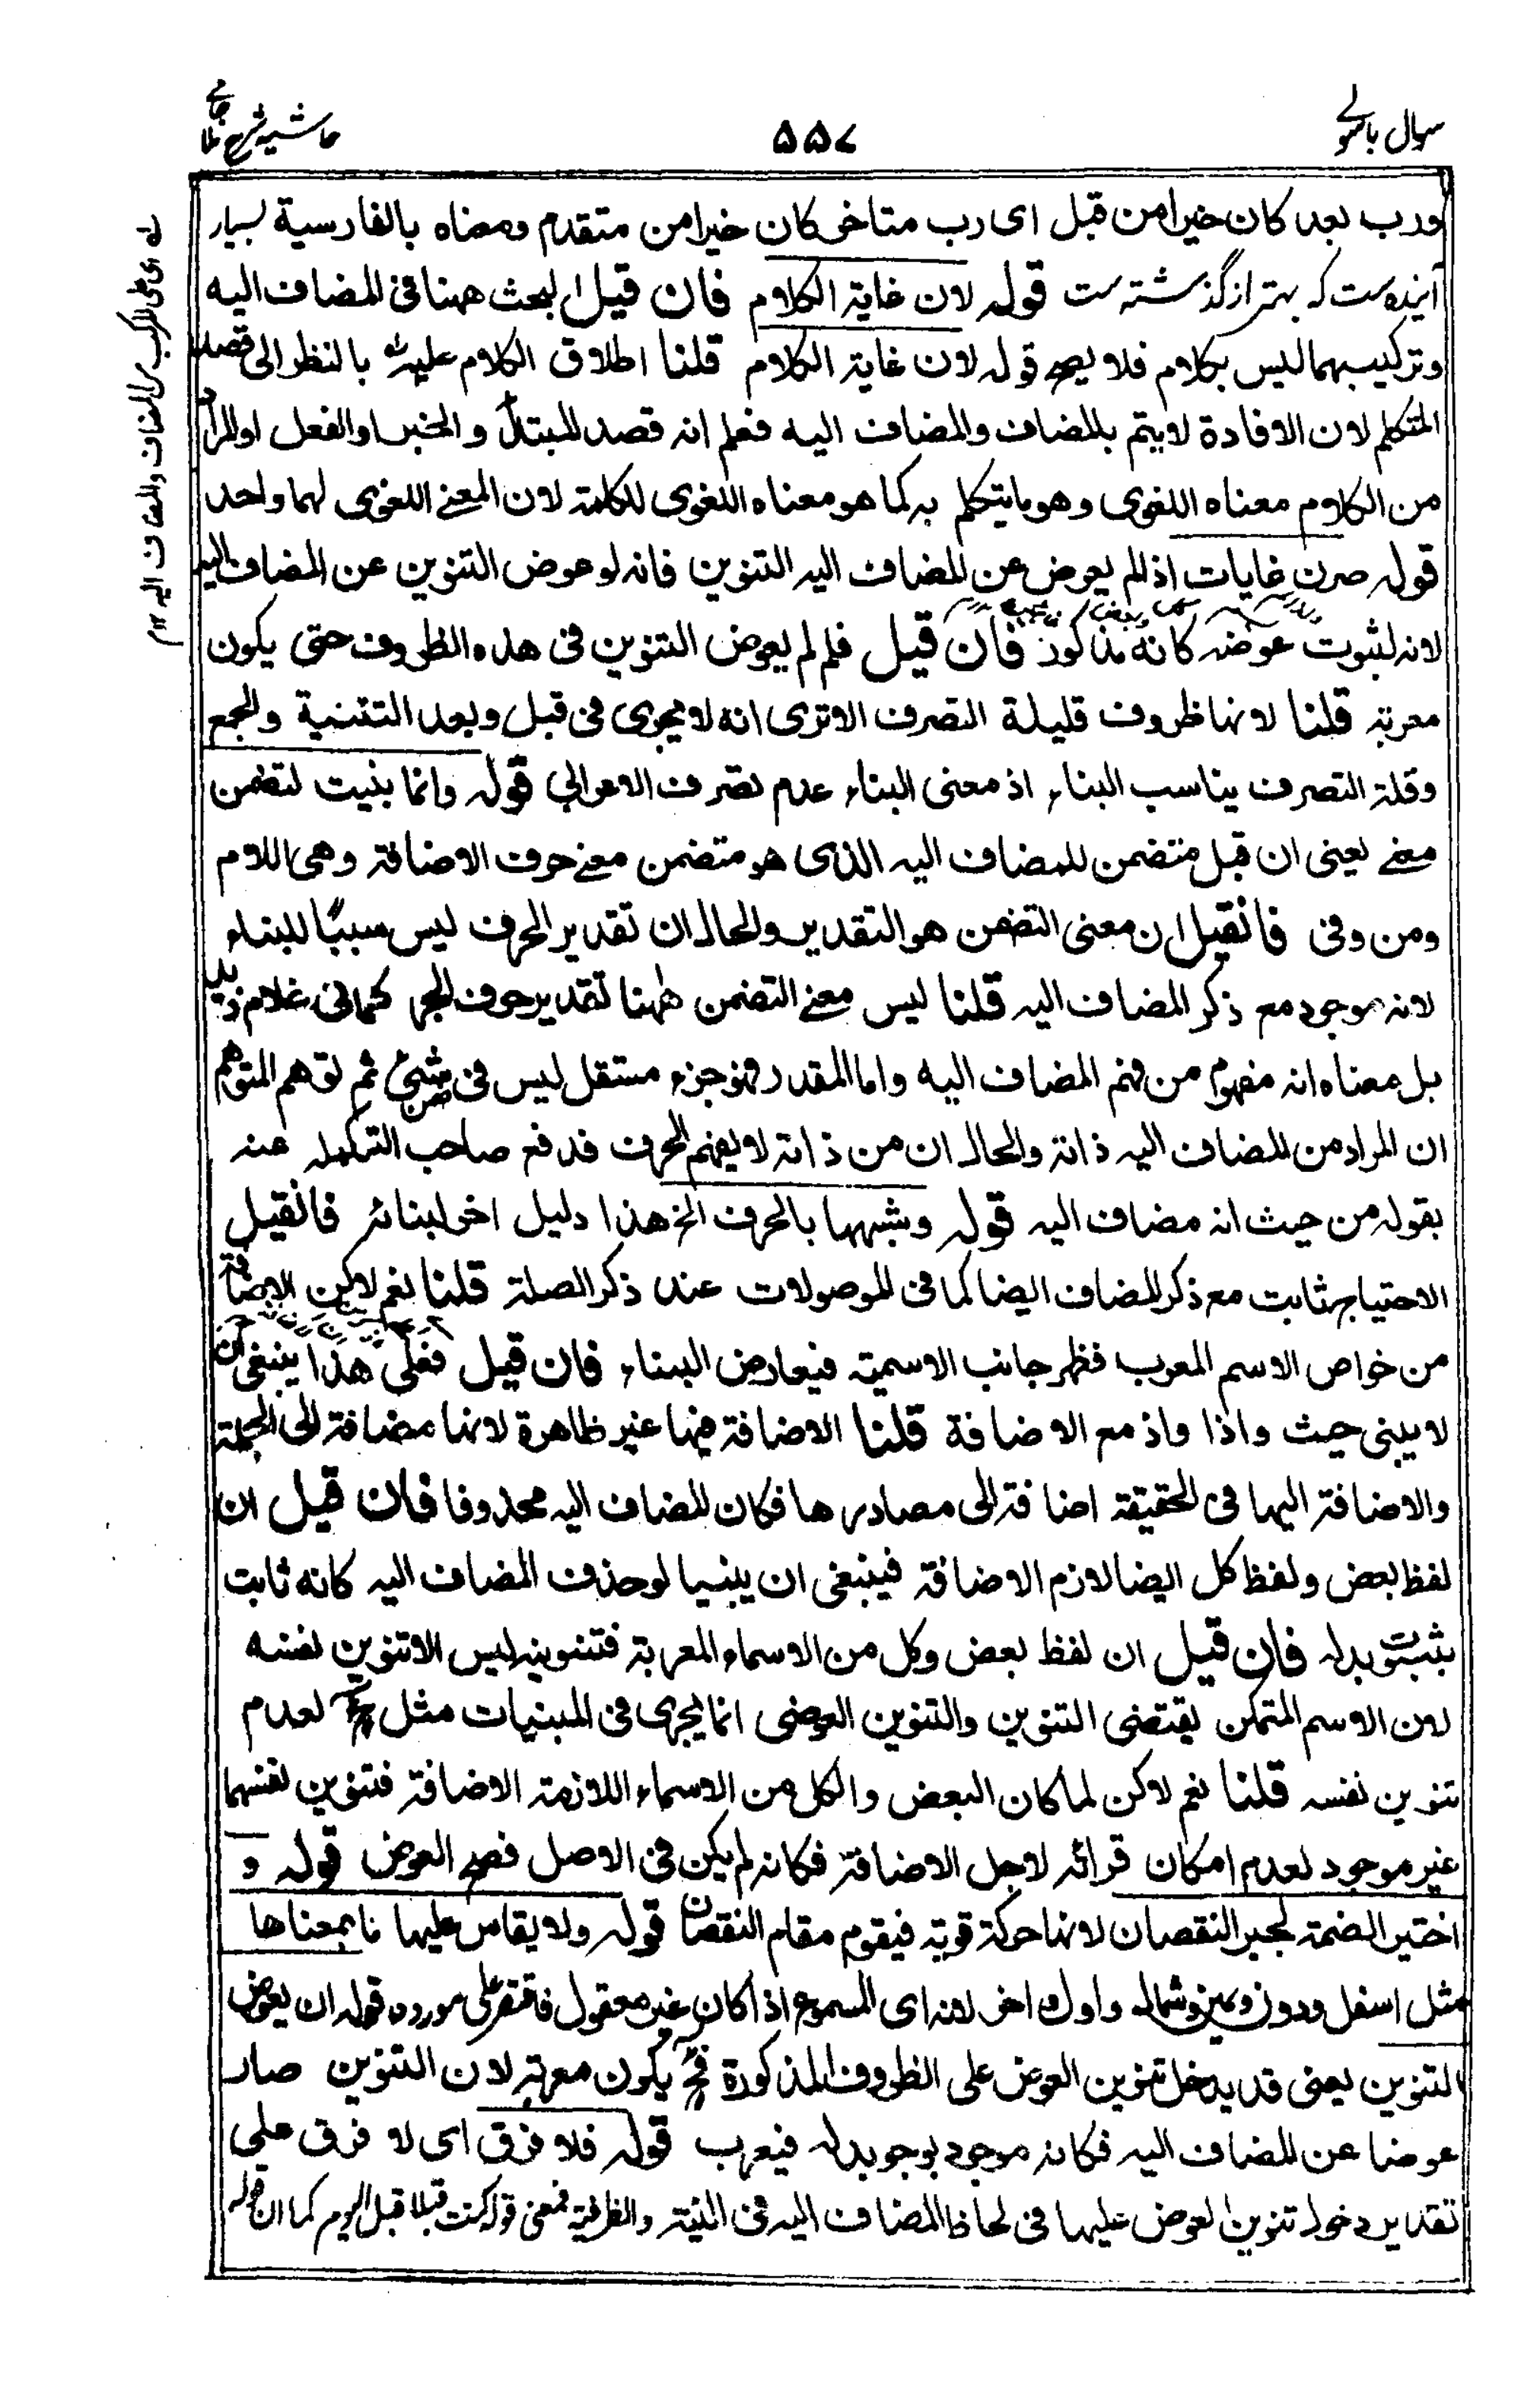 سوال باسولے
۵۵۷
حاشیہ شرح ملا جامے
ورب بعد کان خیرا من قبل ای رب متاخر کان خیرا من متقدم ومعناه بالفارسیة بسیار
آینده ست که بهتر از گذشته ست قوله لان غایة الکلام فان قیل البحث ههنا فی المضاف الیه
وترکیبهما لیس بکلام فلا یصح قوله لان غایة الکلام قلنا اطلاق الکلام علیه بالنظر الی قصد
المتکلم لان الافادة لا یتم بالمضاف والمضاف الیه فعلم انه قصد المبتدأ والخبر او الفعل او المراد
من الکلام معناه اللغوی وهو ما یتکلم به کما هو معناه اللغوی للکلمة لان المعنے اللغوی لهما واحد
قوله صرن غایات اذ لم یعوض عن المضاف الیه التنوین فانه لو عوض التنوین عن المضاف الیه
لانه لثبوت عوضه کانه مذکور فان قیل فلم لم یعوض التنوین فی هذه الظروف حتی یکون
معربة قلنا لانها ظروف قلیلة التصرف الا تری انه لا یجری فی قبل وبعد التثنیة والجمع
وقلة التصرف یناسب البناء اذ معنی البناء عدم تصرف الاعرابی قوله وانما بنیت لتضمن
معنے یعنی ان قبل متضمن للمضاف الیه الذی هو متضمن معنے حرف الاضافة وهی اللام
ومن وفی فانقیل ان معنی التضمن هو التقدیر والحال ان تقدیر الحرف لیس سببًا للبناء
لانه موجود مع ذکر المضاف الیه قلنا لیس معنے التضمن ههنا تقدیر حرف الجر کما فی غلام زید
بل معناه انه مفهوم من فهم المضاف الیه واما المقدر فهو جزء مستقل لیس فی ضمن شیئ ثم توهم المتوهم
ان المراد من المضاف الیه ذاته والحال ان من ذاته لا یفهم الحرف فدفع صاحب التکمله عنه
بقوله من حیث انه مضاف الیه قوله وشبهها بالحرف الخ هذا دلیل اخر لبنائه فانقیل
الاحتیاج ثابت مع ذکر المضاف ایضا کما فی الموصولات عند ذکر الصلة قلنا نعم لاکن الاضافة
من خواص الاسم المعرب فظهر جانب الاسمیة فیعارض البناء فان قیل فعلی هذا ینبغی ان
لا یبنی حیث واذا واذ مع الاضافة قلنا الاضافة فیها غیر ظاهرة لانها مضافة الی الجملة
والاضافة الیها فی الحقیقة اضافة الی مصادرها فکان المضاف الیه محذوفا فان قیل ان
لفظ بعض ولفظ کل ایضا لازم الاضافة فینبغی ان یبنیا لو حذف المضاف الیه کانه ثابت
بثبوت بدله فان قیل ان لفظ بعض وکل من الاسماء المعربة فتنوینه لیس الا تنوین نفسه
لان الاسم المتمکن یقتضی التنوین والتنوین العوضی انما یجری فی المبنیات مثل لعدم
تنوین نفسه قلنا نعم لاکن لما کان البعض والکل من الاسماء اللازمة الاضافة فتنوین نفسهما
غیر موجود لعدم امکان قرائه لاجل الاضافة فکانه لم یکن فی الاصل فصح العوض قوله و
اختیر الضمة لجبر النقصان لانها حرکة قویة فیقوم مقام النقصان قوله ولا یقاس علیها ما بمعناها
مثل اسفل ودون ویمین وشمال واول واخر لانه ای المسموع اذا کان غیر معقول فاقتصر علی مورده قوله ان یعوض
التنوین یعنی قد یدخل تنوین العوض علی الظروف المذکورة فح یکون معربة لان التنوین صار
عوضا عن المضاف الیه فکانه موجود بوجود بدله فیعرب قوله فلا فرق ای لا فرق علی
تقدیر دخول تنوین العوض علیها فی لحاظ المضاف الیه فی النیة والظرفیة فمعنی قوله کنت قبلا قبل الیوم کما ان قوله
له ای علی المرکب من المضاف والمضاف الیه ۱۲ م